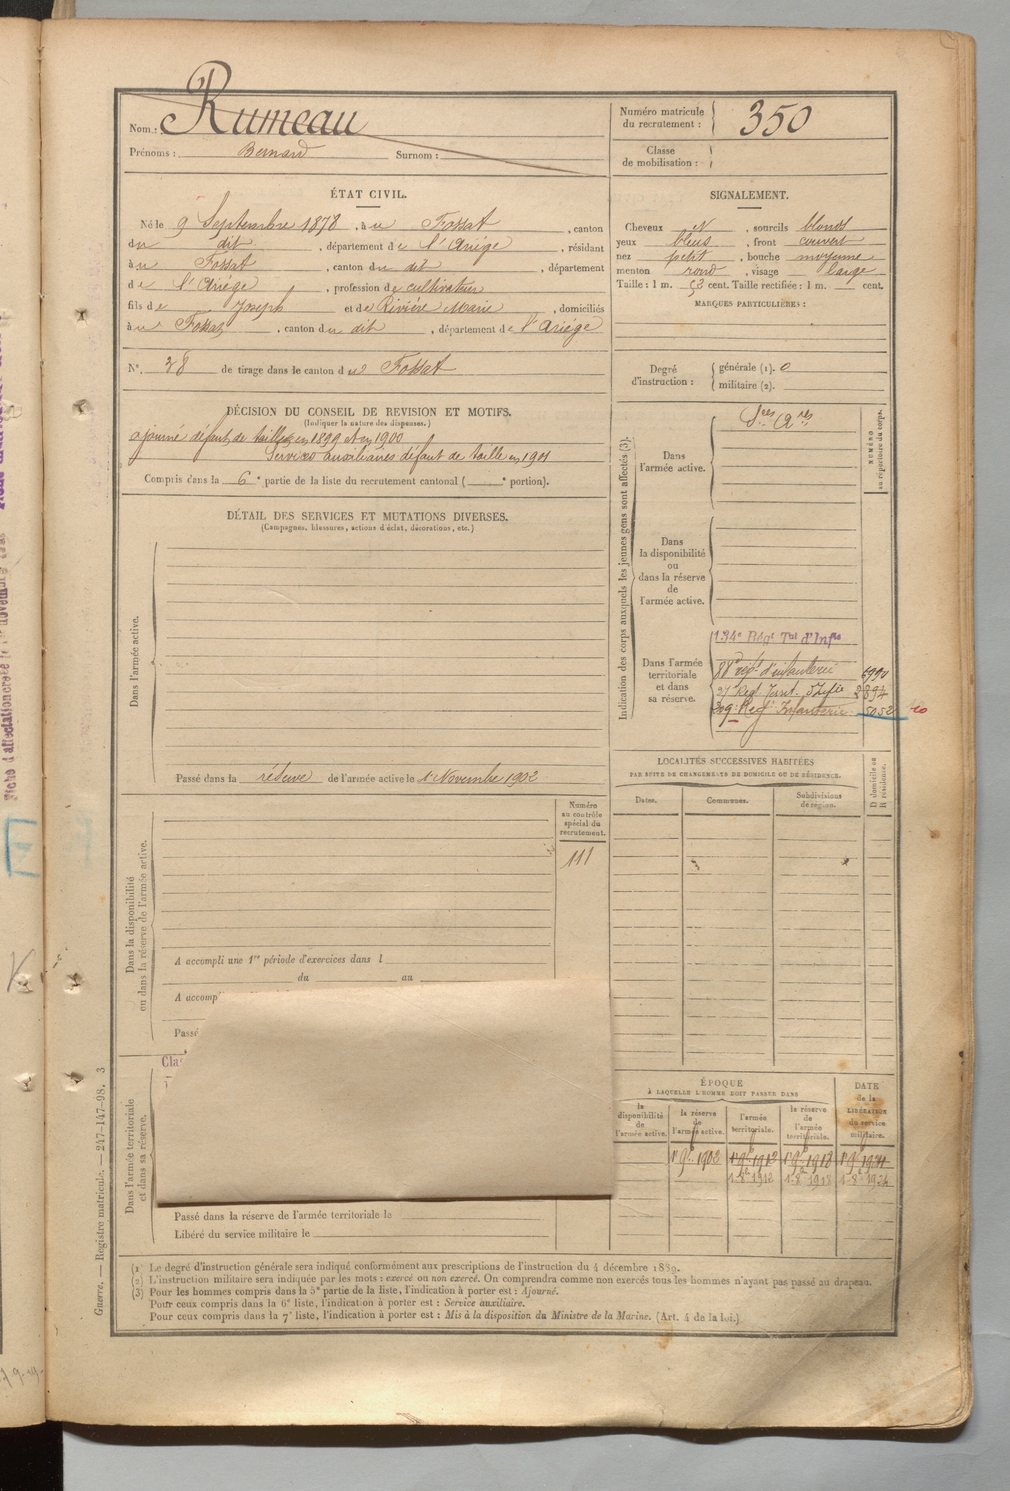 Nom : Rumeau
Prénoms : Bernard Surnom :
Numéro matricule du recrutement : 350
Classe de mobilisation :
ÉTAT CIVIL.
Né le 9 Septembre 1878, à u Fossat, canton
du dit, département de l'Ariège, résidant
à u Fossat, canton du dit, département
de l'Ariège, profession de cultivateur
fils de Joseph et de Rivière Marie, domiciliés
à u Fossat, canton du dit, département de l'Ariège
N° 28 de tirage dans le canton du Fossat
SIGNALEMENT.
Cheveux et, sourcils blonds
yeux bleus, front couvert
nez petit, bouche moyenne
menton rond, visage large
Taille : 1 m. 53 cent. Taille rectifiée : 1 m. cent.
MARQUES PARTICULIÈRES :
Degré d'instruction :
générale (1). 0
militaire (2).
DÉCISION DU CONSEIL DE REVISION ET MOTIFS.
(Indiquer la nature des dispenses.)
ajourné défaut de taille en 1899 et en 1900
Services auxiliaires défaut de taille en 1901
Compris dans la 6e partie de la liste du recrutement cantonal ( e portion).
DÉTAIL DES SERVICES ET MUTATIONS DIVERSES.
(Campagnes, blessures, actions d'éclat, décorations, etc.)
Dans l'armée active.
Passé dans la réserve de l'armée active le 1er Novembre 1902
Indication des corps auxquels les jeunes gens sont affectés (3).
NUMÉRO au répertoire du corps.
Dans l'armée active.
Sces Ares
Dans la disponibilité ou dans la réserve de l'armée active.
Dans l'armée territoriale et dans sa réserve.
134e Régt Tal d'Infie
88e régt d'infanterie 6990
27 Regt 2894
209e Regt Infanterie 5052
LOCALITÉS SUCCESSIVES HABITÉES
PAR SUITE DE CHANGEMENTS DE DOMICILE OU DE RÉSIDENCE.
Dates. Communes. Subdivisions de région.
D domicile ou R résidence.
Numéro au contrôle spécial du recrutement.
111
Dans la disponibilité ou dans la réserve de l'armée active.
A accompli une 1re période d'exercices dans l
du au
A accomp
Passé
Clas
Dans l'armée territoriale et dans sa réserve.
Passé dans la réserve de l'armée territoriale le
Libéré du service militaire le
ÉPOQUE
À LAQUELLE L'HOMME DOIT PASSER DANS
la disponibilité de l'armée active.
la réserve de l'armée active.
l'armée territoriale.
la réserve de l'armée territoriale.
DATE de la LIBÉRATION du service militaire.
1er 9bre 1902 1er 9bre 1912 1er 9bre 1918 1er 9bre 1924
(1) Le degré d'instruction générale sera indiqué conformément aux prescriptions de l'instruction du 4 décembre 1889.
(2) L'instruction militaire sera indiquée par les mots : exercé ou non exercé. On comprendra comme non exercés tous les hommes n'ayant pas passé au drapeau.
(3) Pour les hommes compris dans la 5e partie de la liste, l'indication à porter est : Ajourné.
Pour ceux compris dans la 6e liste, l'indication à porter est : Service auxiliaire.
Pour ceux compris dans la 7e liste, l'indication à porter est : Mis à la disposition du Ministre de la Marine. (Art. 4 de la loi.)
Guerre. — Registre matricule. — 247-147-98. 3